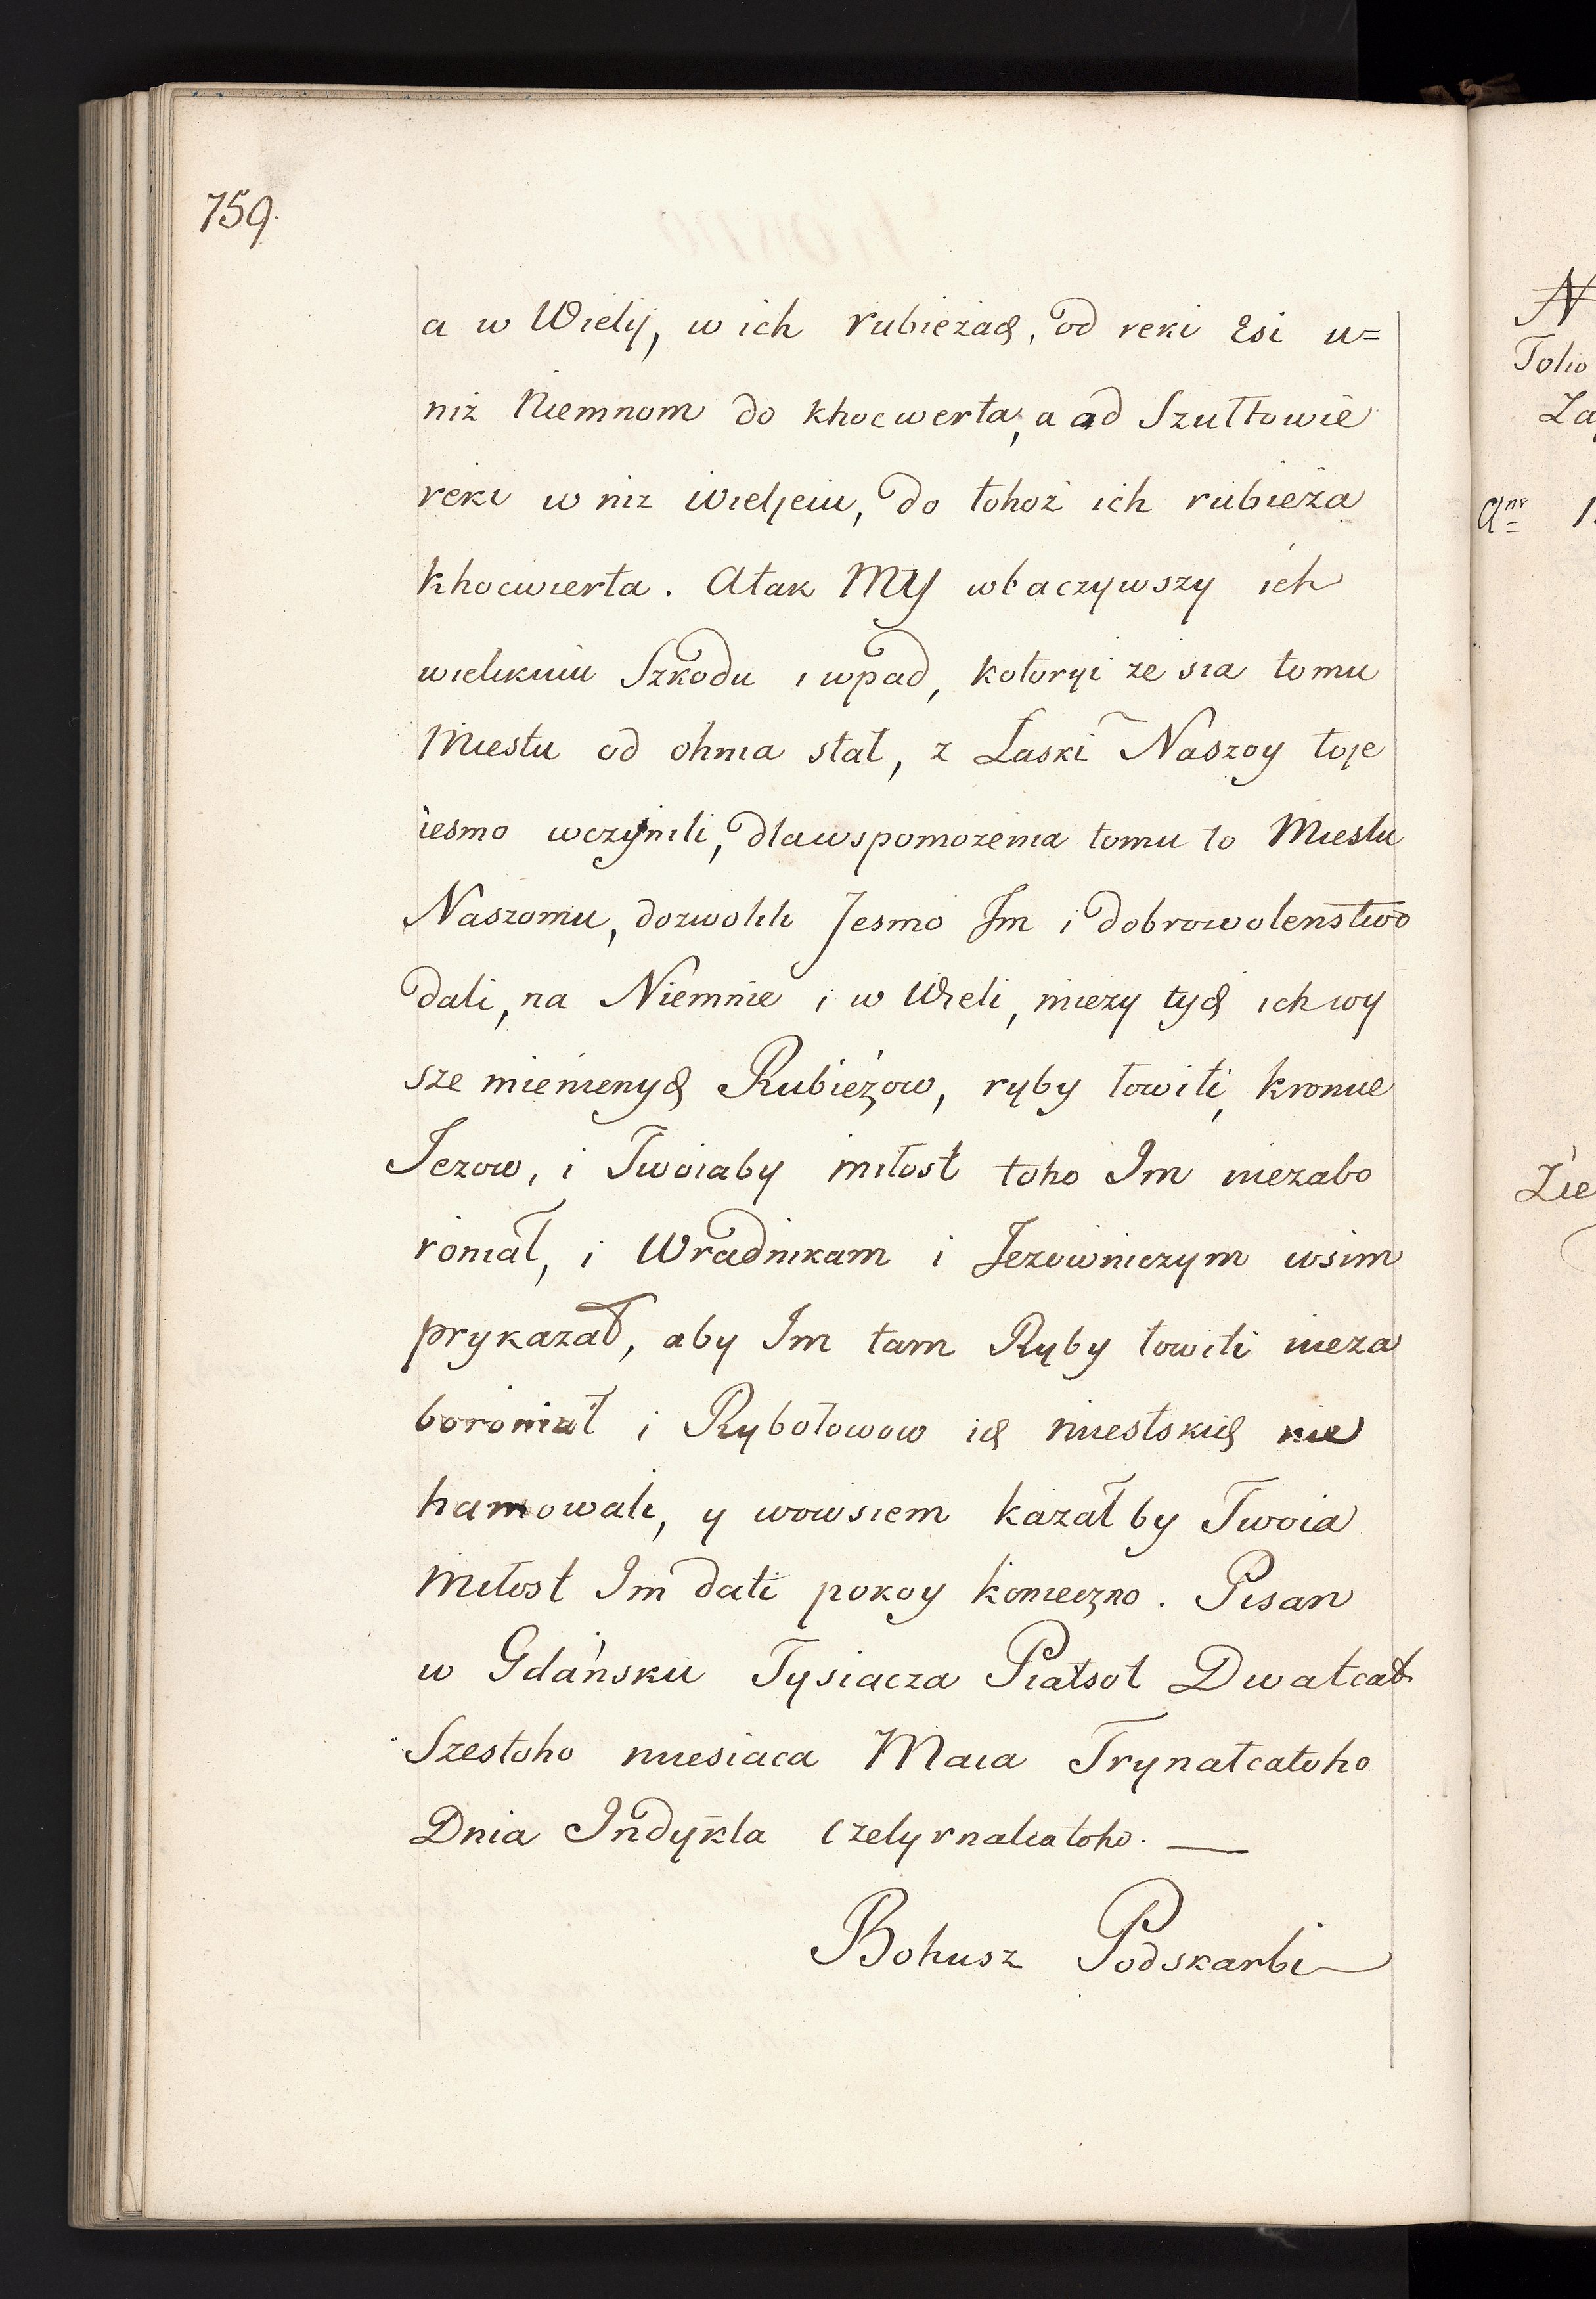 759.
a w Wielij, w ich rubieżach, od reki Esi u=
niz Niemnom do khocwerta, a ad Szułtowie
reki w niz Wieljeiu, do tohoż ich rubieża
khocwierta. Atak MY wbaczywszy ich
wielikuiu Szkodu i wpad, kotoryi ze sia tomu
Miestu od ohnia stał, z Łaski Naszoy toje
iesmo wczynili, dla wspomożenia tomu to Miestu
Naszomu, dozwolili Jesmo Im i dobrowolenstwo
dali, na Niemnie i w Wieli, mieży tych ich wy
sze mienienych Rubieżow, ryby łowiti, kromie
Jezow, i Twoiaby miłost toho Im niezabo
roniał, i Wradnikam i Jezowniczym wsim
prykazał, aby Im tam Ryby łowiti nieza
boroniał i Rybołowow ich miestskich nie
hamowali, y wowsiem kazał by Twoia
Miłost Im dati pokoy konieczno. Pisan
w Gdańsku Tysiacza Piatsot Dwatcat
Szestoho miesiaca Maia Trynatcatoho
Dnia Indykta Czetyrnatcatoho. —
Bohusz Podskarbi
N
Toho
Za
Anr 1
Zie